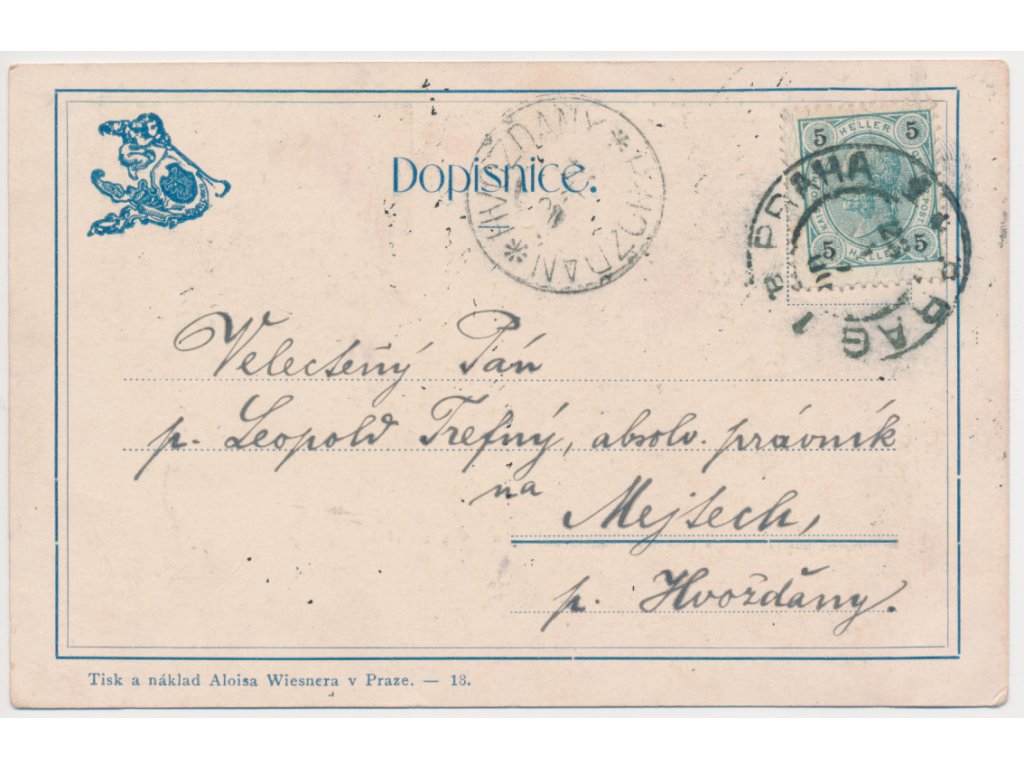 Dopisnice.
HVOŽDANY * HVOZDAN *
5 HELLER 5
5 HELLER 5
PRAHA 1 PRAG 1
Velectěný Pán
p. Leopold Trefný, absolv. právník
na
Mejtech,
p. Hvožďány.
Tisk a náklad Aloisa Wiesnera v Praze. — 18.